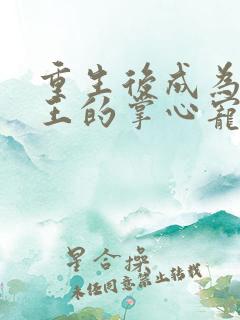 重生後成為
王的掌心寵
星合操
未經同意禁止轉載